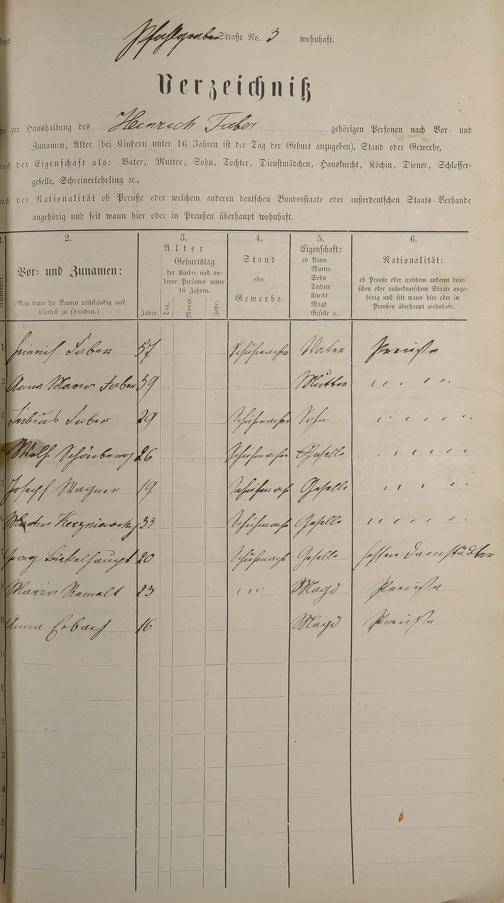 Straße No. 3 wohnhaft.
Verzeichniß
zur Haushaltung des Heinrich Faber gehörigen Personen nach Vor- und
Zunamen, Alter (bei Kindern unter 16 Jahren ist der Tag der Geburt anzugeben), Stand oder Gewerbe,
nach der Eigenschaft als: Vater, Mutter, Sohn, Tochter, Dienstmädchen, Hausknecht, Köchin, Diener, Schlosser-
geselle, Schreinerlehrling ec.,
nach der Nationalität ob Preuße oder welchem anderen deutschen Bundesstaate oder außerdeutschen Staats-Verbande
angehörig und seit wann hier oder in Preußen überhaupt wohnhaft.
2. 3. 4. 5. 6.
Vor- und Zunamen:
(Man bittet die Namen vollständig und
leserlich zu schreiben.)
Alter
Geburtstag
der Kinder und an-
derer Personen unter
16 Jahren.
Jahre. Tag. Monat. Jahr.
Stand
oder
Gewerbe.
Eigenschaft:
ob Vater
Mutter
Sohn
Tochter
Knecht
Magd
Geselle u.
Nationalität:
ob Preuße oder welchem anderen deut-
schen oder außerdeutschen Staate ange-
hörig und seit wann hier oder in
Preußen überhaupt wohnhaft.
Heinrich Faber 57 Schuhmacher Vater Preuße
Anna Maria Faber 59 Mutter " " " "
Julius Faber 29 Schuhmacher Sohn " " " " "
Schönberg 26 Schuhmacher Geselle " " " " "
Joseph Wagner 19 Schuhmach Geselle " " " " "
33 Schuhmach Geselle " " " " "
Georg Bickelhaupt 20 Schuhmach Geselle Hessen Darmstädter
Maria 23 " " " Magd Preuße
Anna Erbach 16 Magd Preuße